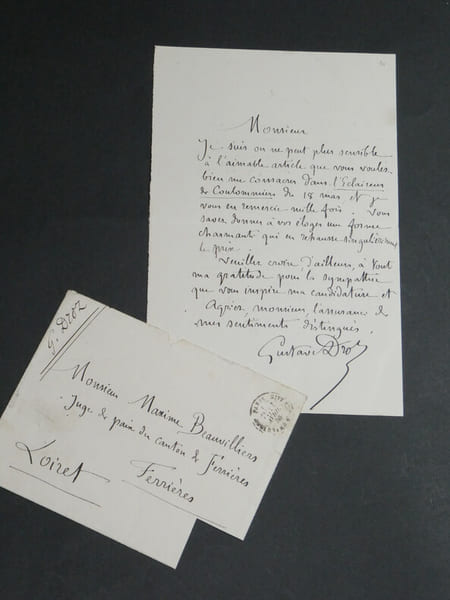 Monsieur
Je suis on ne peut plus sensible
à l'aimable article que vous voulez
bien me consacrer dans l'Eclaireur
de Coulommiers du 18 mar et je
vous en remercie mille fois. Vous
savez donner à vos éloges une forme
charmante qui en rehausse singulièrement
le prix.
Veuillez croire, d'ailleurs, à tout
ma gratitude pour la sympathie
que vous inspire ma candidature et
Agréez, monsieur, l'assurance de
mes sentiments distingués.
Gustave Droz
G. Droz
Monsieur Maxime Beauvilliers
Juge de paix du canton de Ferrières
Ferrières
Loiret